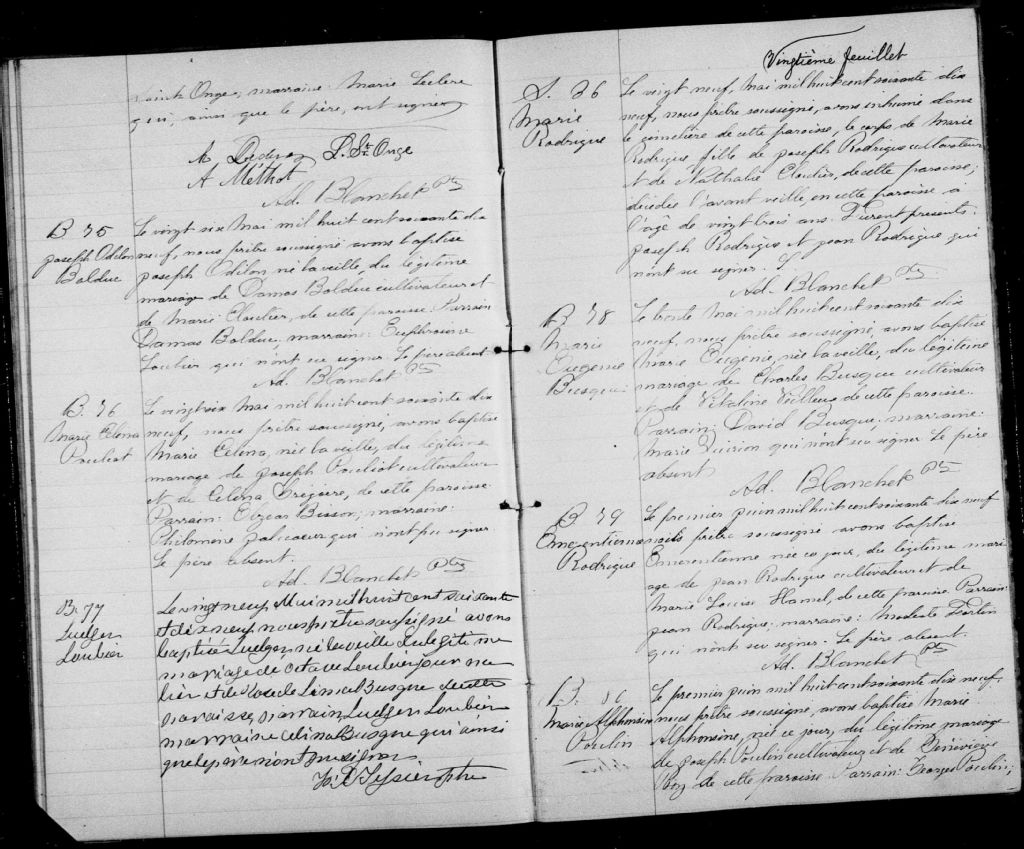 Sainte Onge, marraine: Marie Leclere
qui, ainsi que le père, ont signé.
P. St. Onge
A Méthot
Ad. Blanchet Ptr
B 75
Joseph Odilon
Bolduc
Le vingt six Mai mil huit cent soixante dix
neuf, nous prêtre soussigné avons baptisé
Joseph Odilon né la veille, du légitime
mariage de Damas Bolduc cultivateur et
de Marie Cloutier, de cette paroisse. Parrain
Damas Bolduc, marraine: Euphrosine
qui n'ont su signer. Le père absent.
Ad. Blanchet Ptr
B. 76
Marie Celena
Pouliot
Le vingt six Mai mil huit cent soixante dix
neuf, nous prêtre soussigné, avons baptisé
Marie Celena, née la veille, du légitime
mariage de Joseph Pouliot cultivateur
et de Celena Grégoire, de cette paroisse.
Parrain: Elzear Bisson; marraine:
Philomene qui n'ont pu signer.
Le père absent.
Ad. Blanchet Ptr
B. 77
Ludger
Loubier
Le vingt neuf Mai mil huit cent soixante
et dix neuf nous prêtre soussigné avons
baptisé Ludger, né la veille du légitime
mariage de Octave Loubier journa
lier et de Lina Busque de cette
paroisse, parrain Ludger Loubier
marraine Celina Busque qui ainsi
que le père n'ont pu signer
Ptre
Vingtième feuillet
S. 26
Marie
Rodrigue
Le vingt neuf, Mai mil huit cent soixante dix
neuf, nous prêtre soussigné, avons inhumé dans
le cimetière de cette paroisse, le corps de Marie
Rodrigue fille de Joseph Rodrigue cultivateur
et de Nathalie Cloutier, de cette paroisse;
décédée l'avant veille, en cette paroisse à
l'âge de vingt trois ans. Furent présents:
Joseph Rodrigue et Jean Rodrigue qui
n'ont su signer.
Ad. Blanchet Ptr
B 78
Marie
Eugenie
Busque
Le trente Mai mil huit cent soixante dix
neuf, nous prêtre soussigné, avons baptisé
Marie Eugenie, née la veille, du légitime
mariage de Charles Busque cultivateur
et de Vitaline Veilleux de cette paroisse.
Parrain: David Busque, marraine:
Marie qui n'ont su signer. Le père
absent
Ad. Blanchet Ptr
B 79
Emerentienne
Rodrigue
Le premier Juin mil huit cent soixante dix neuf
nous prêtre soussigné avons baptisé
Emerentienne née ce jour, du légitime mari
age de Jean Rodrigue cultivateur et de
Marie Louise Hamel, de cette paroisse. Parrain:
Jean Rodrigue; marraine: Modeste Fortin
qui n'ont su signer. Le père absent.
Ad. Blanchet Ptr
B. 80
Marie Alphonsine
Poulin
Le premier Juin mil huit cent soixante dix neuf,
nous prêtre soussigné, avons baptisé Marie
Alphonsine, née ce jour, du légitime mariage
de Joseph Poulin cultivateur et de Geneviève
Roy de cette paroisse Parrain: Georges Poulin;